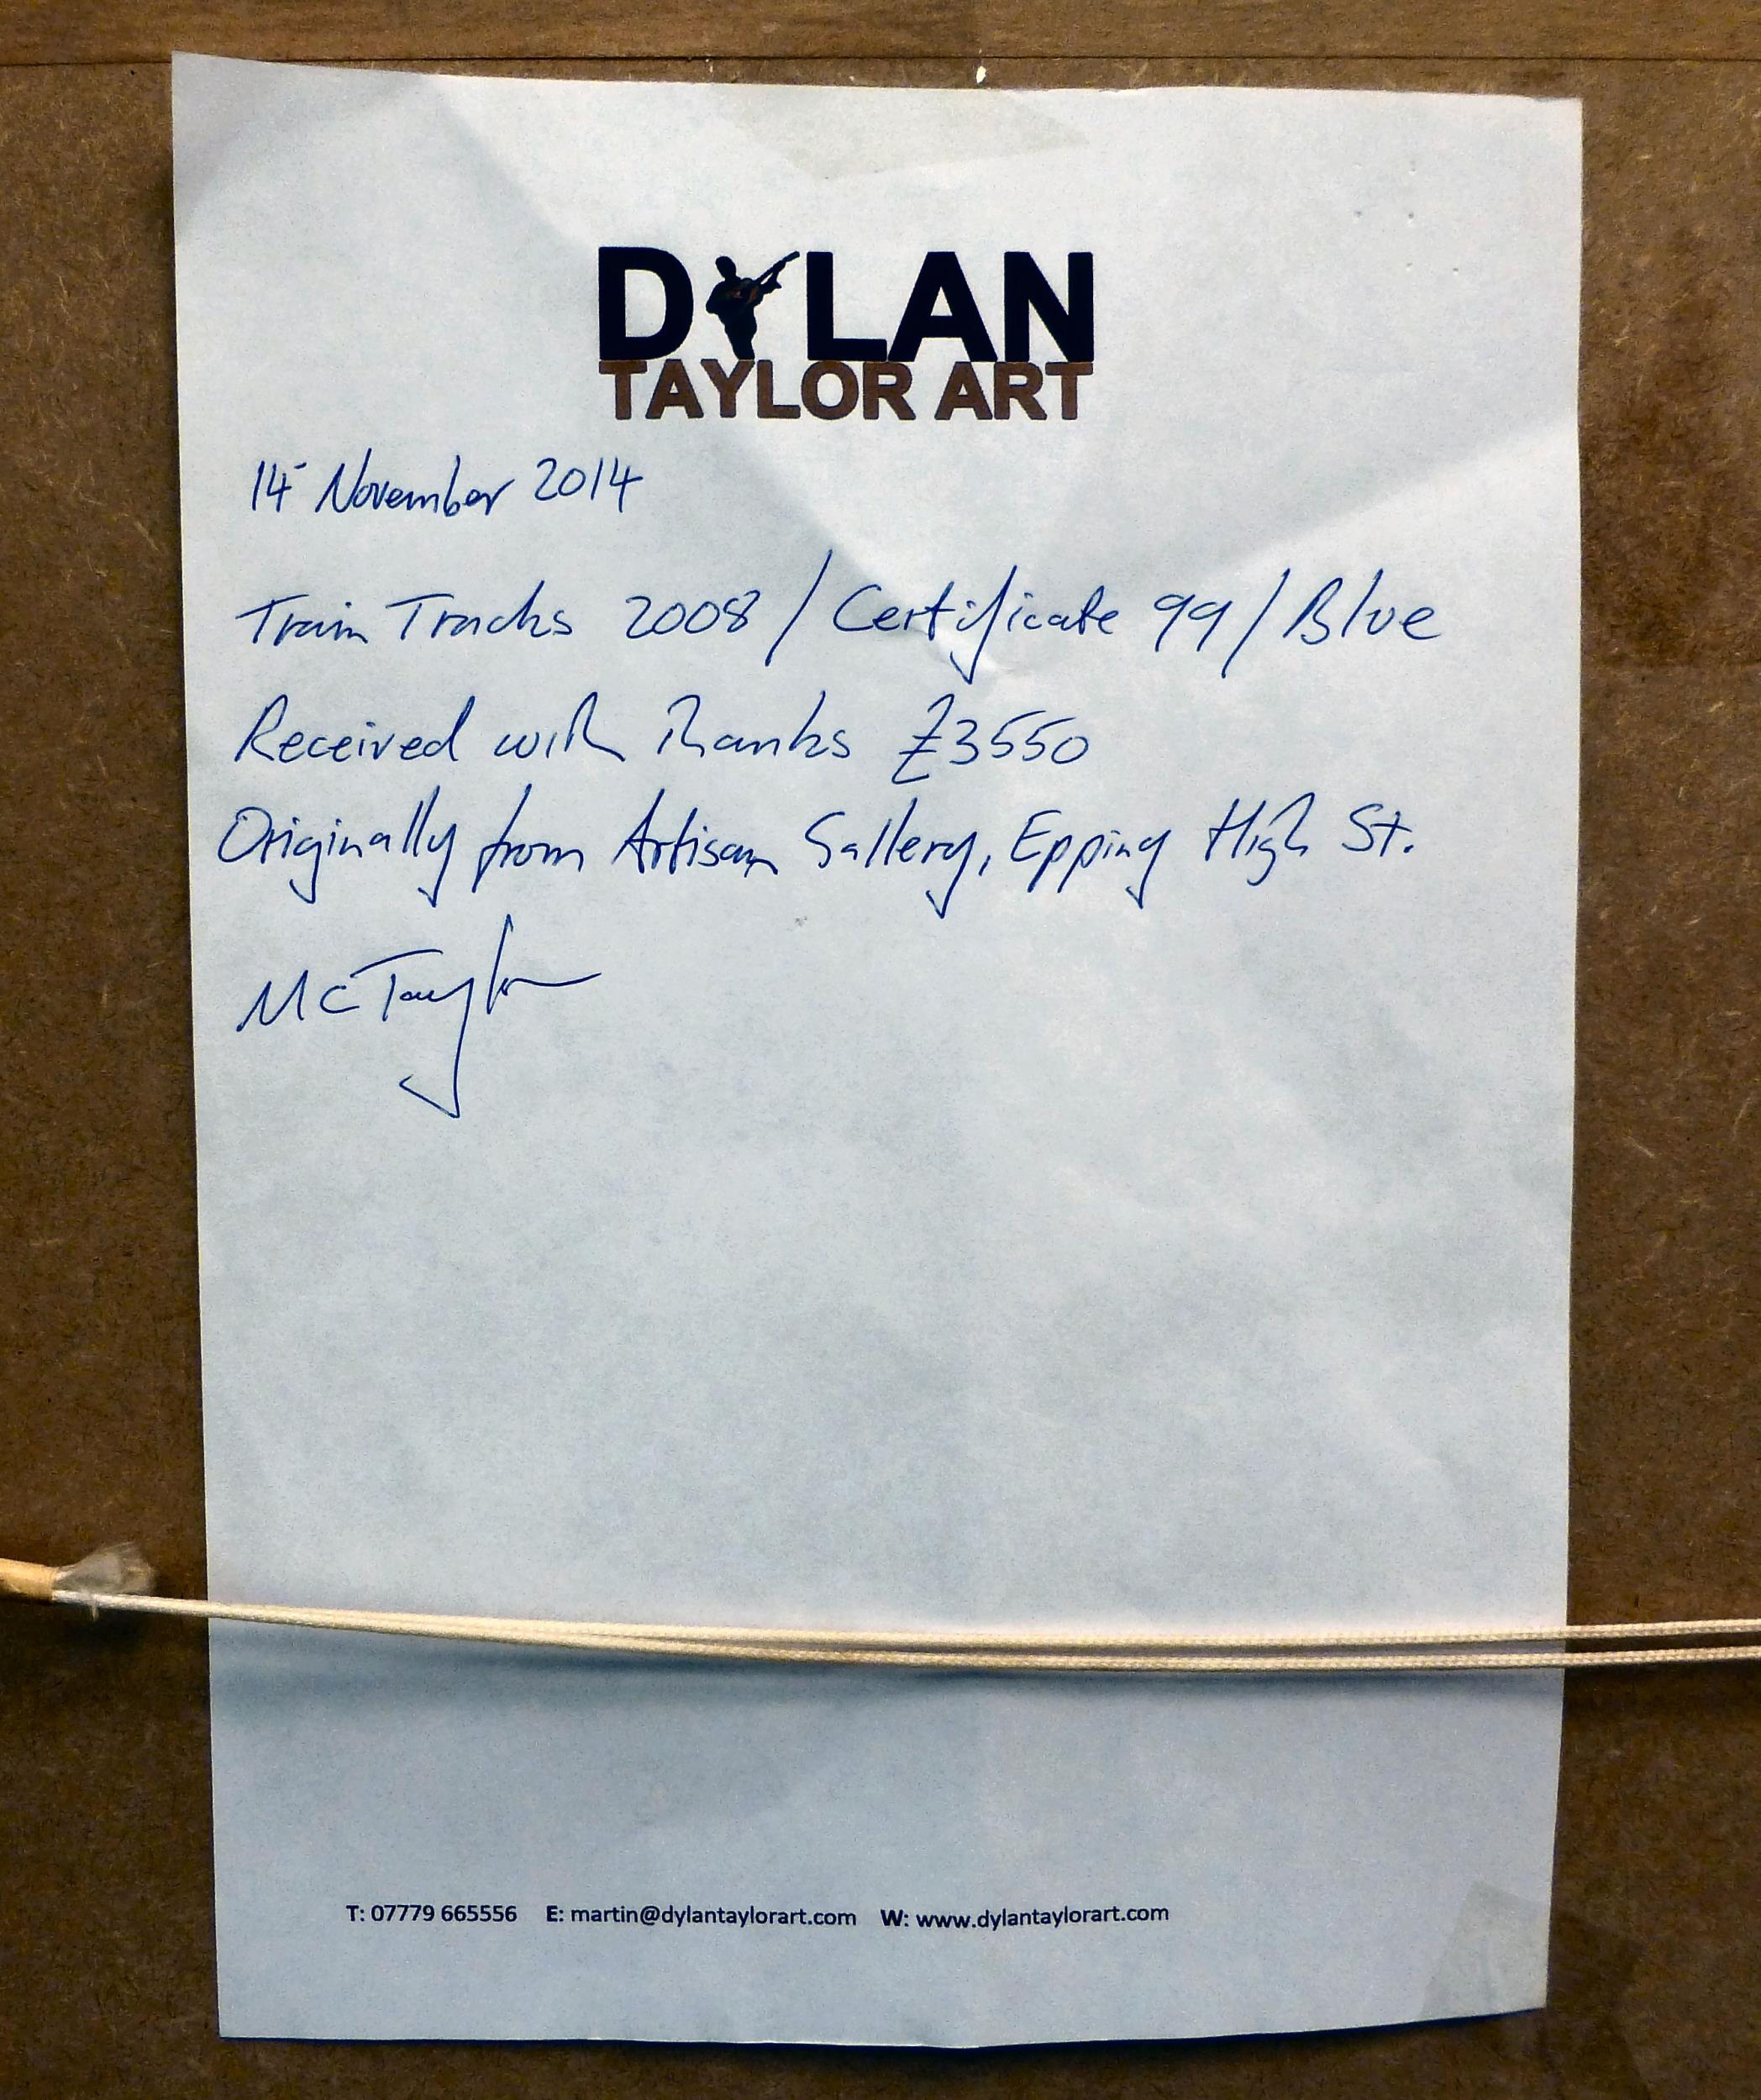 DYLAN
TAYLOR ART
14 November 2014
Train Tracks 2008 / Certificate 99 / Blue
Received with thanks £3550
Originally from Artisan Gallery, Epping High St.
MC Taylor
T: 07779 665556 E: martin@dylantaylorart.com W: www.dylantaylorart.com